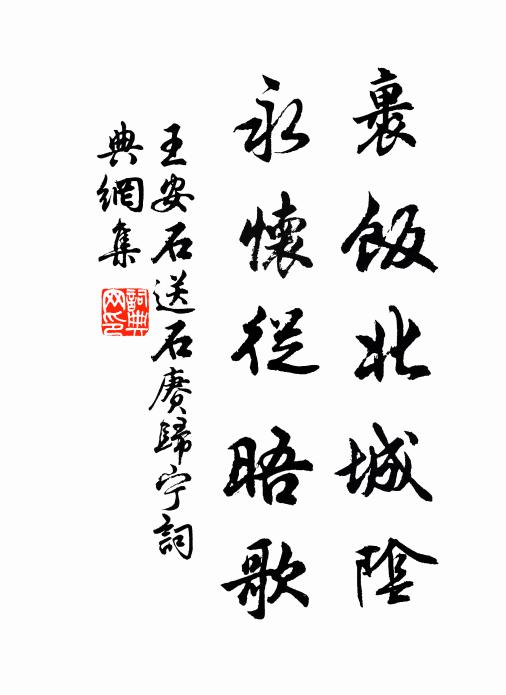 裹飯北城陰
永懷從晤歌
王安石送石賡歸宁詞
典網集
詞典
网印